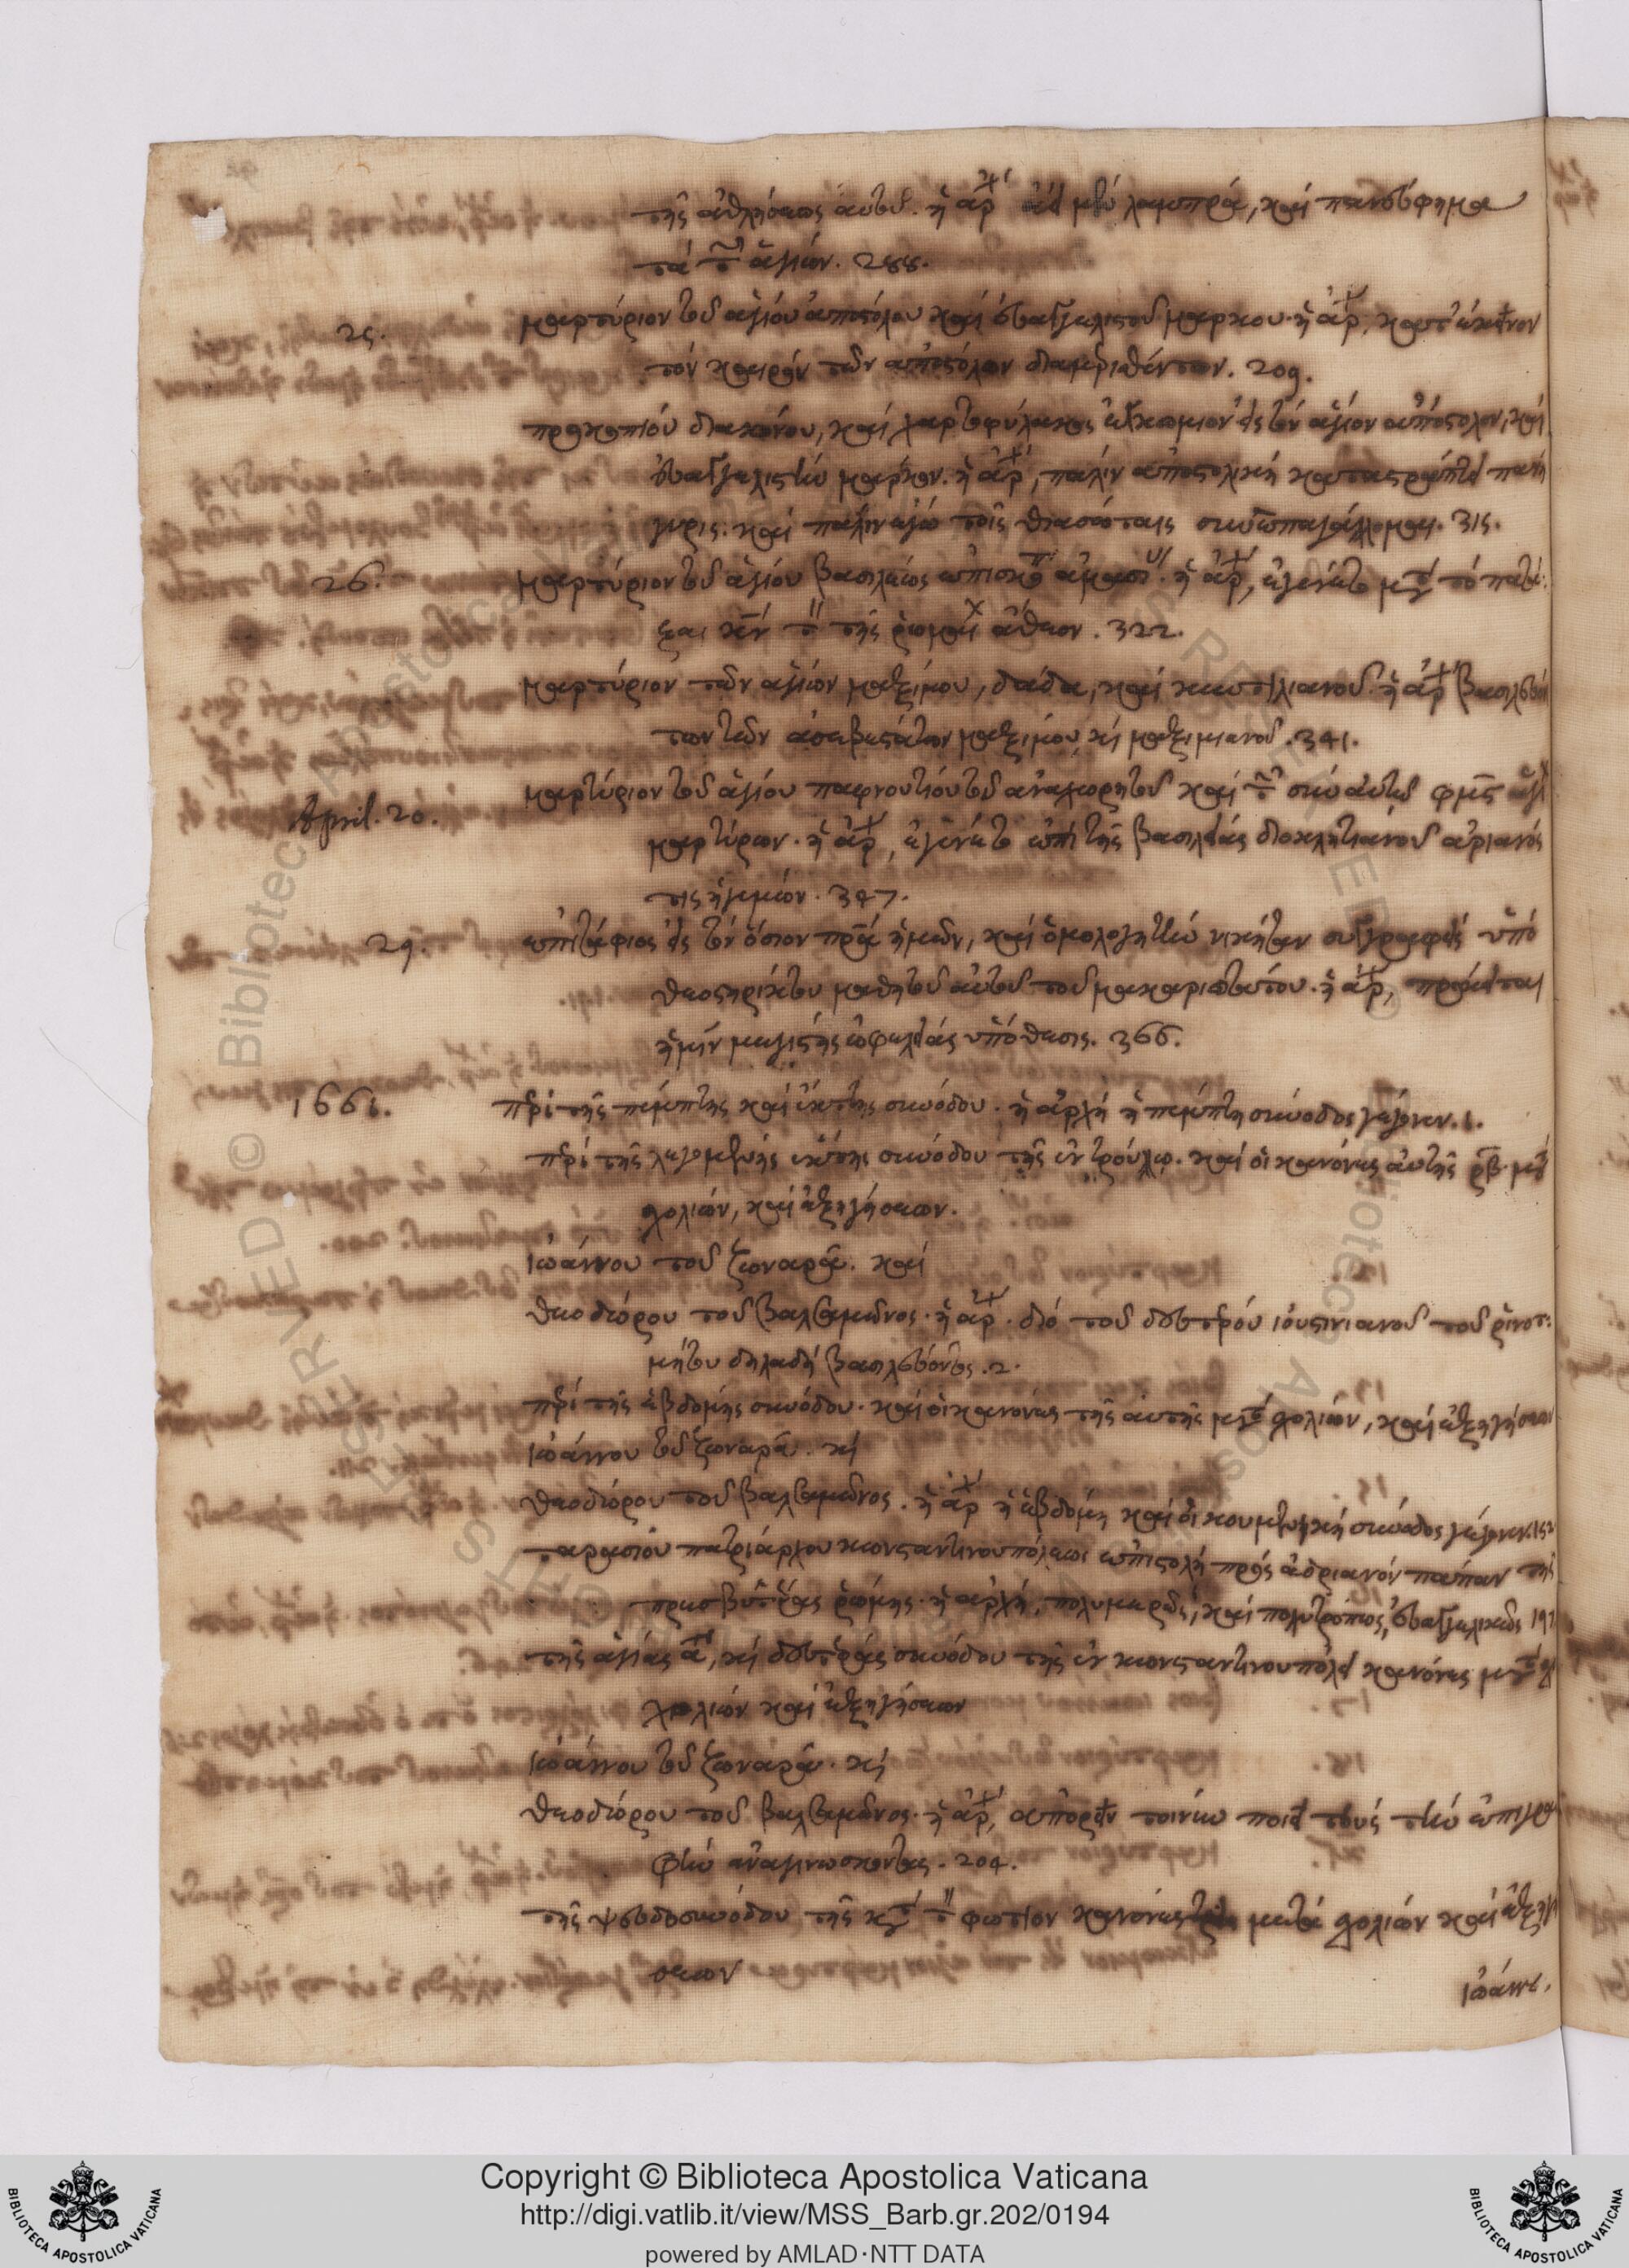 τῆς ἀθλήσεως αὐτοῦ. ἡ ἀρχ ἀεὶ μὲν λαμπρά, καὶ πανεύφημα
τὰ τ ἁγίων. 288.
25. μαρτύριον τοῦ ἁγίου ἀποστόλου καὶ εὐαγγελιστοῦ μάρκου. ἡ ἀρχ, κατ' ἐκεῖνον
τὸν καιρὸν τῶν ἀποστόλων διαμερισθέντων. 309.
προκοπίου διακόνου, καὶ χαρτοφύλακος ἐγκώμιον εἰς τὸν ἅγιον ἀπόστολον, καὶ
εὐαγγελιστὴν μάρκον. ἡ ἀρχ, πάλιν ἀποστολικὴ καταστράπτει πανή
γυρις. καὶ πάλιν ἐγὼ τοῖς θιασώταις συνεπαγάλλομαι. 315.
26. μαρτύριον τοῦ ἁγίου βασιλέως ἐπισκόπ ἀμασι. ἡ ἀρχ, ἐγένετο μετ τὸ πατά
ξαι τῆς ῥωμαι ἄθεον. 322.
μαρτύριον τῶν ἁγίων μαξίμου, δάδα, καὶ κυντιλιανοῦ. ἡ ἀρχ βασιλευόν
των τῶν ἀσεβεστάτων μαξίμου, καὶ μαξιμιανοῦ. 341.
April. 20. μαρτύριον τοῦ ἁγίου παφνουτίου τοῦ ἀναχωρητοῦ καὶ τ σὺν αὐτῷ φμς ἁγί
μαρτύρων. ἡ ἀρχ, ἐγένετο ἐπὶ τῆς βασιλείας διοκλητιανοῦ ἀριανός
τις ἡγεμών. 347.
29. ἐπιτάφιος εἰς τὸν ὅσιον πρα ἡμῶν, καὶ ὁμολογητὴν νικήταν συγγραφεὶς ὑπὸ
θεοστηρίκτου μαθητοῦ αὐτοῦ τοῦ μακαριωτάτου. ἡ ἀρχ, πρόκειται
ἡμῖν μεγίστης ὠφελείας ὑπόθεσις. 366.
1661. περὶ τῆς πέμπτης καὶ ἕκτης συνόδου. ἡ ἀρχὴ ἡ πέμπτη σύνοδος γέγονεν. 1.
περὶ τῆς λεγομένης ἕκτης συνόδου τῆς ἐν τρούλῳ. καὶ οἱ κανόνες αὐτῆς ρβ. μετ
σχολίων, καὶ ἐξηγήσεων.
ἰωάννου τοῦ ζωναρᾶ. καὶ
θεοδώρου τοῦ βαλσαμῶνος. ἡ ἀρχ. διὸ τοῦ δευτέρου ἰουστινιανοῦ τοῦ ῥινοτ:
μήτου δηλαδὴ βασιλεύοντος. 2.
περὶ τῆς ἑβδόμης συνόδου. καὶ οἱ κανόνες τῆς αὐτῆς μετ σχολίων, καὶ ἐξηγήσεων
ἰωάννου τοῦ ζωναρᾶ. καὶ
θεοδώρου τοῦ βαλσαμῶνος. ἡ ἀρχ ἡ ἑβδόμη καὶ οἰκουμενικὴ σύνοδος γέγονεν. 152
ταρασίου πατριάρχου κωνσταντινουπόλεως ἐπιστολὴ πρὸς ἀδριανὸν πάπαν τῆς
πρεσβυτέρας ῥώμης. ἡ ἀρχή, πολυμερῶς, καὶ πολυτρόπως, εὐαγγελικῶς 197
τῆς ἁγίας α, καὶ δευτέρας συνόδου τῆς ἐν κωνσταντινουπόλει κανόνες μετ
χολίων καὶ ἐξηγήσεων
ἰωάννου τοῦ ζωναρᾶ. καὶ
θεοδώρου τοῦ βαλσαμῶνος. ἡ ἀρχ, ἀπορεῖν τοίνυν ποιεῖ τοὺς τὴν ἐπιγρα
φὴν ἀναγινώσκοντας. 204.
τῆς ψευδοσυνόδου τῆς κατ τ φωτίον κανόνες μετὰ σχολίων καὶ ἐξηγή
σεων
ἰωάννου
Copyright © Biblioteca Apostolica Vaticana
http://digi.vatlib.it/view/MSS_Barb.gr.202/0194
powered by AMLAD·NTT DATA
BIBLIOTECA APOSTOLICA VATICANA
BIBLIOTECA APOSTOLICA VATICANA